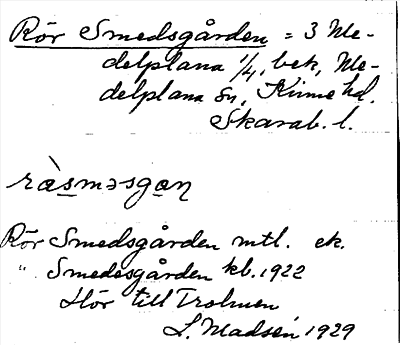 Rör Smedsgården = 3 Me-
delplana 1/4, bek, Me-
delplana sn, Kinne hd.
Skarab. l.
rà̀smǝsgaṇ
Rör Smedsgården mtl. ek.
" Smedesgården kb. 1922
Hör till Trolmen
L. Madsén 1929